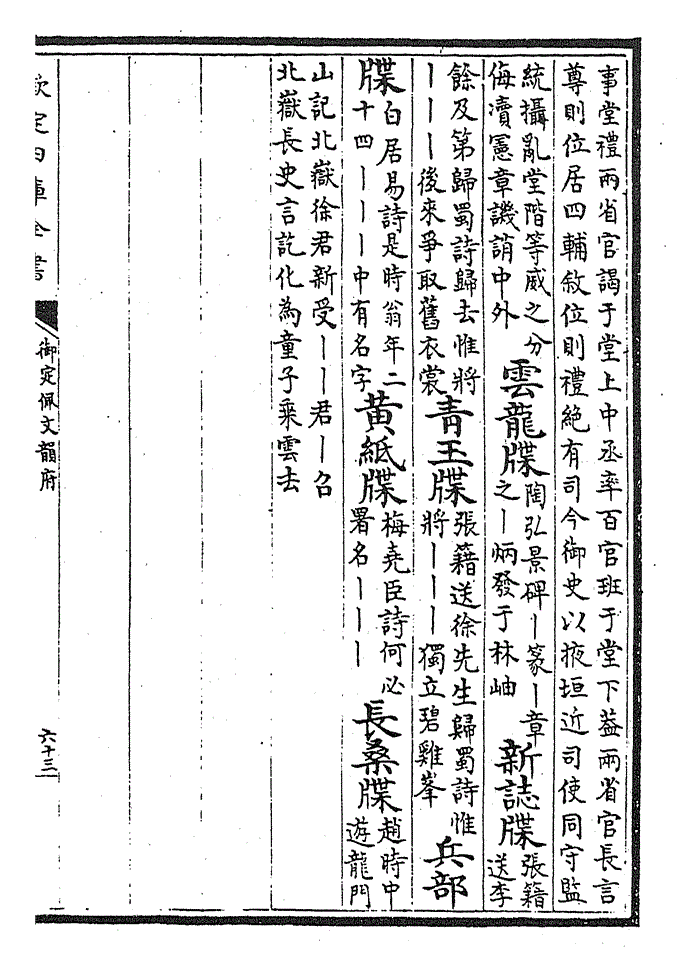 事堂禮兩省官謁于堂上中丞率百官班于堂下葢兩省官長言
尊則位居四輔敘位則禮絶有司今御史以掖垣近司使同守監
統攝亂堂階等威之分
侮瀆憲章譏誚中外
雲龍牒
陶弘景碑丨篆丨章
之丨炳發于林岫
新誌牒
張籍
送李
餘及第歸蜀詩歸去惟將
丨丨丨後來爭取舊衣裳
青玉牒
張籍送徐先生歸蜀詩惟
將丨丨丨獨立碧雞峯
兵部
牒
白居易詩是時翁年二
十四丨丨丨中有名字
黃紙牒
梅堯臣詩何必
署名丨丨丨
長桑牒
趙時中
遊龍門
山記北嶽徐君新受丨丨君丨召
北嶽長史言訖化為童子乗雲去
欽定四庫全書
御定佩文韻府
六十三